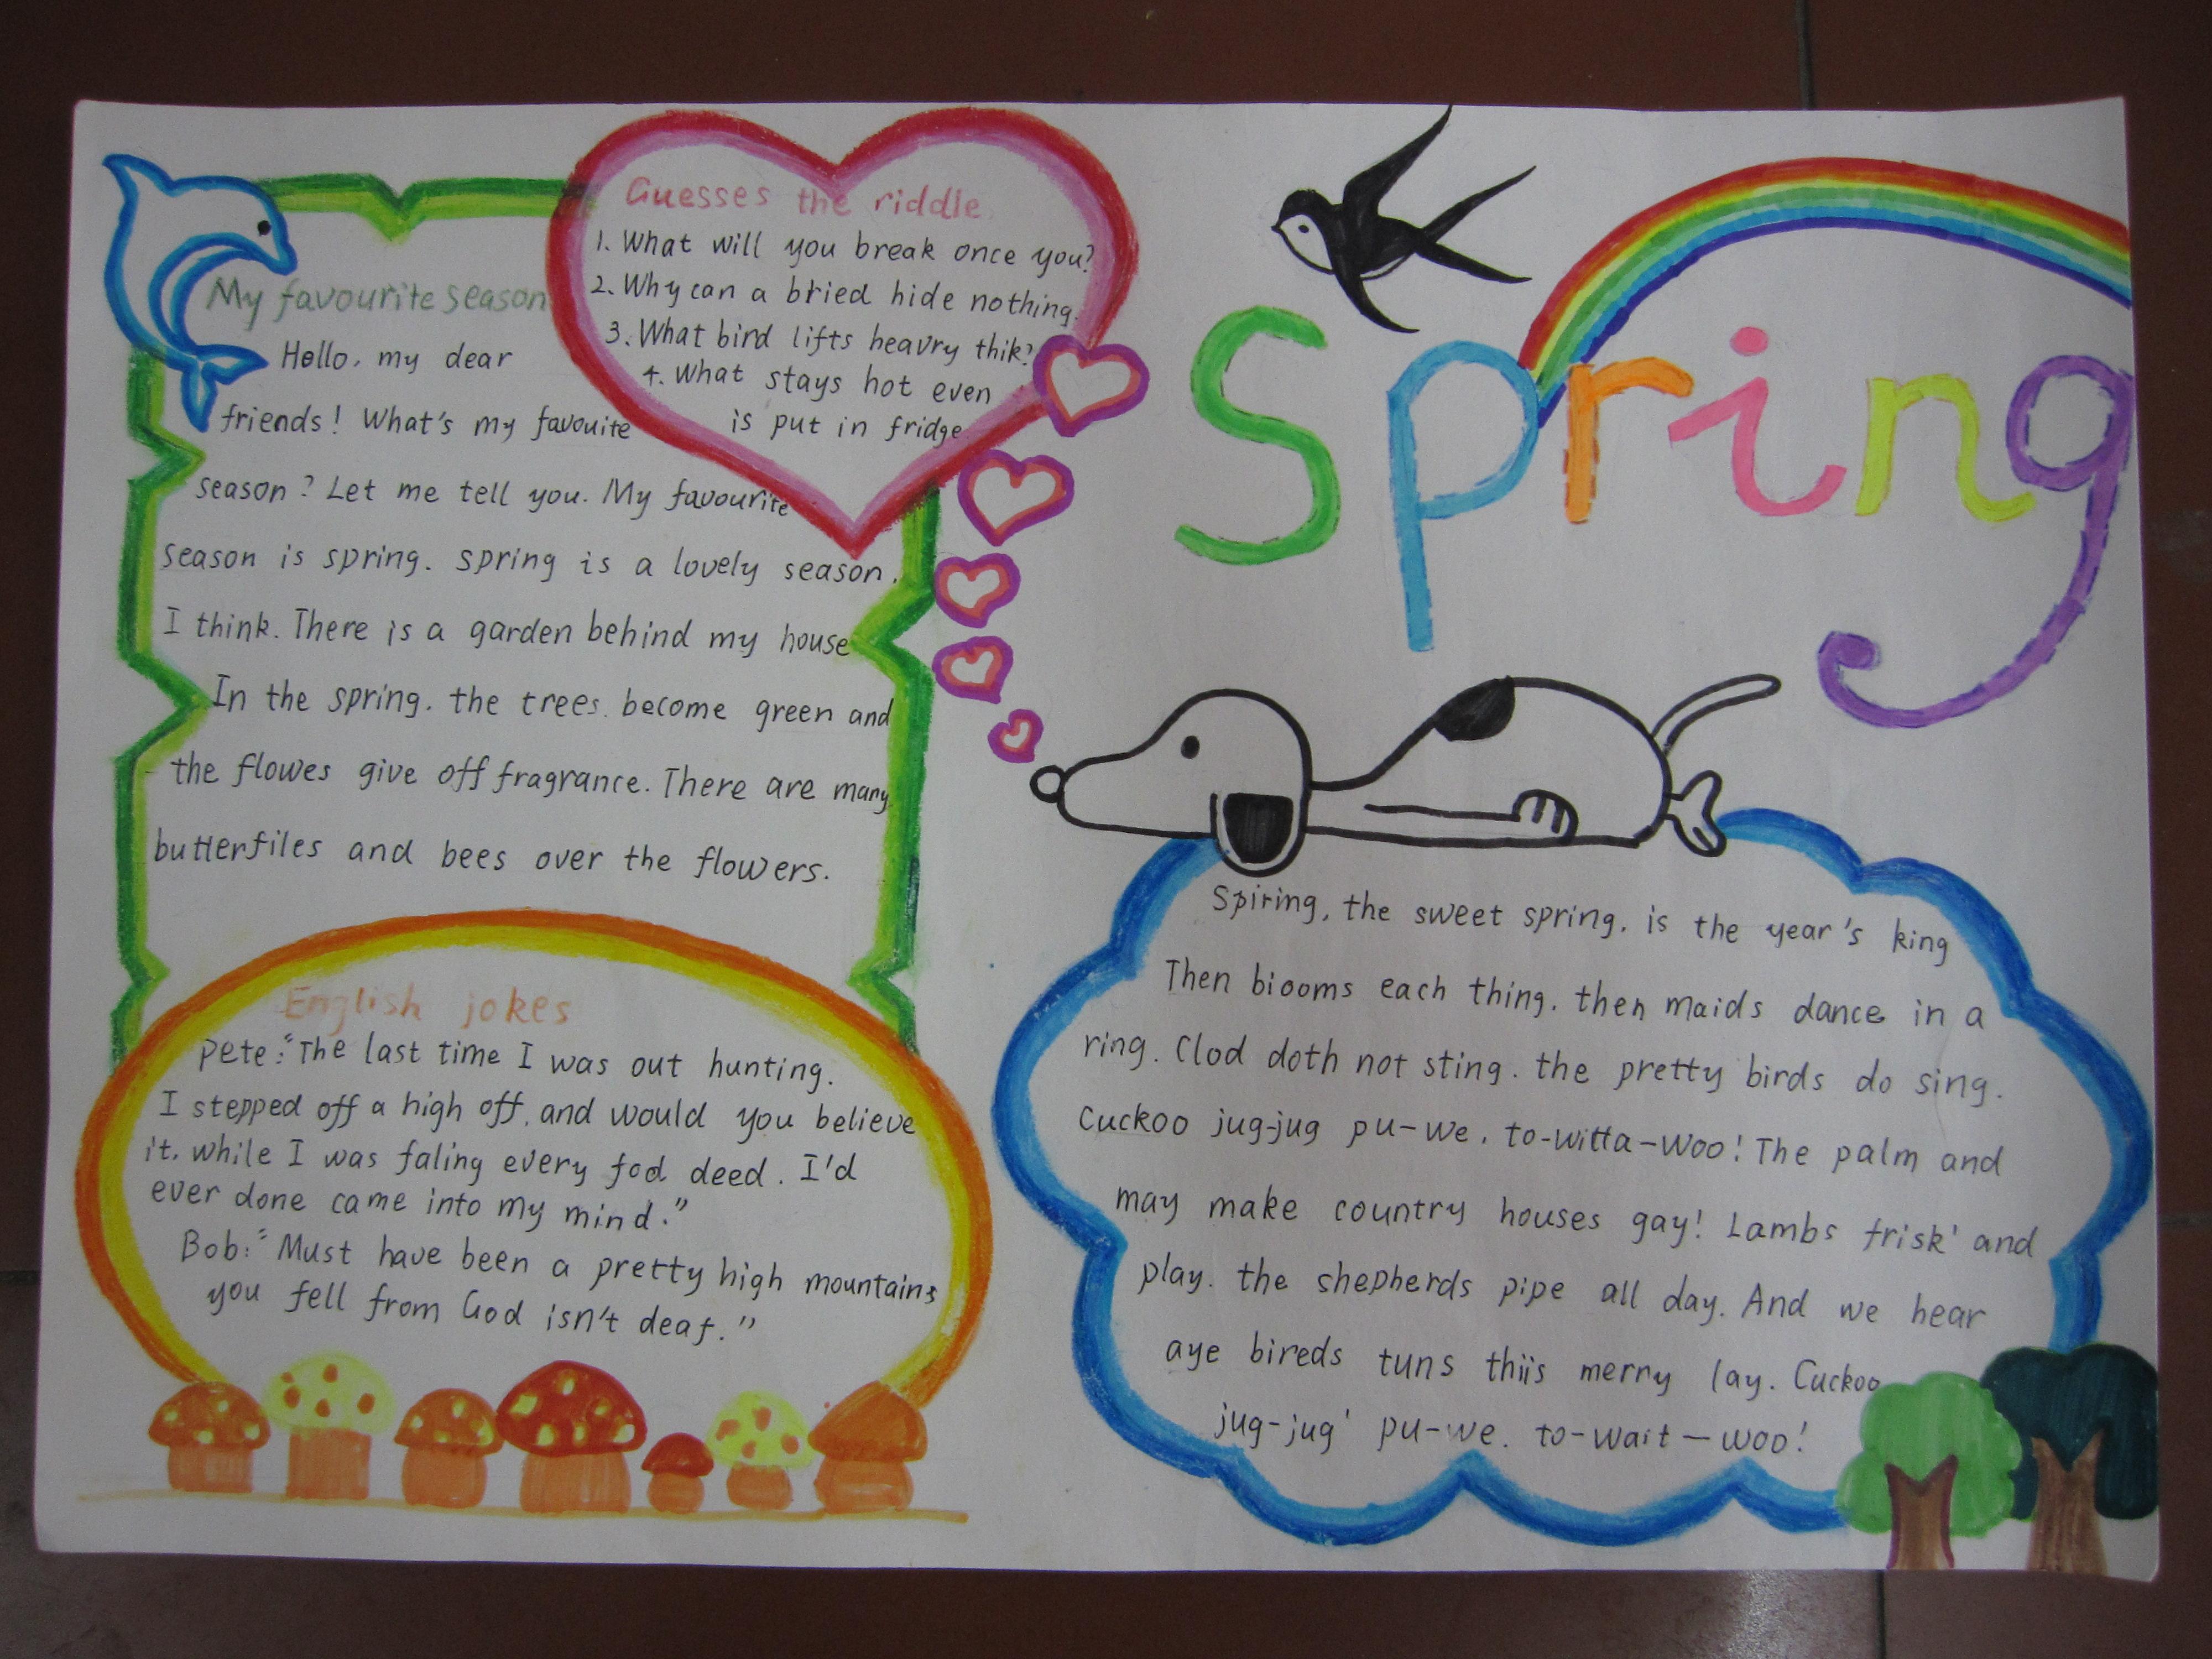 My favourite season
Hello, my dear
friends! What's my favouite
season? Let me tell you. My favourite
season is spring. spring is a lovely season.
I think. There is a garden behind my house
In the spring. the trees. become green and
the flowes give off fragrance. There are many
butterfiles and bees over the flowers.
Guesses the riddle
1. What will you break once you?
2. Why can a bried hide nothing.
3. What bird lifts heavry thik?
4. What stays hot even
is put in fridge
English jokes
Pete: "The last time I was out hunting.
I stepped off a high off, and would you believe
it. while I was faling every fod deed. I'd
ever done came into my mind."
Bob: "Must have been a pretty high mountains
you fell from God isn't deaf."
Spring
Spiring, the sweet spring, is the year's king
Then biooms each thing. then maids dance in a
ring. Clod doth not sting. the pretty birds do sing.
Cuckoo jug-jug pu-we, to-witta-woo! The palm and
may make country houses gay! Lambs frisk' and
play. the shepherds pipe all day. And we hear
aye bireds tuns thiis merry lay. Cuckoo
jug-jug' pu-we. to-wait-woo!